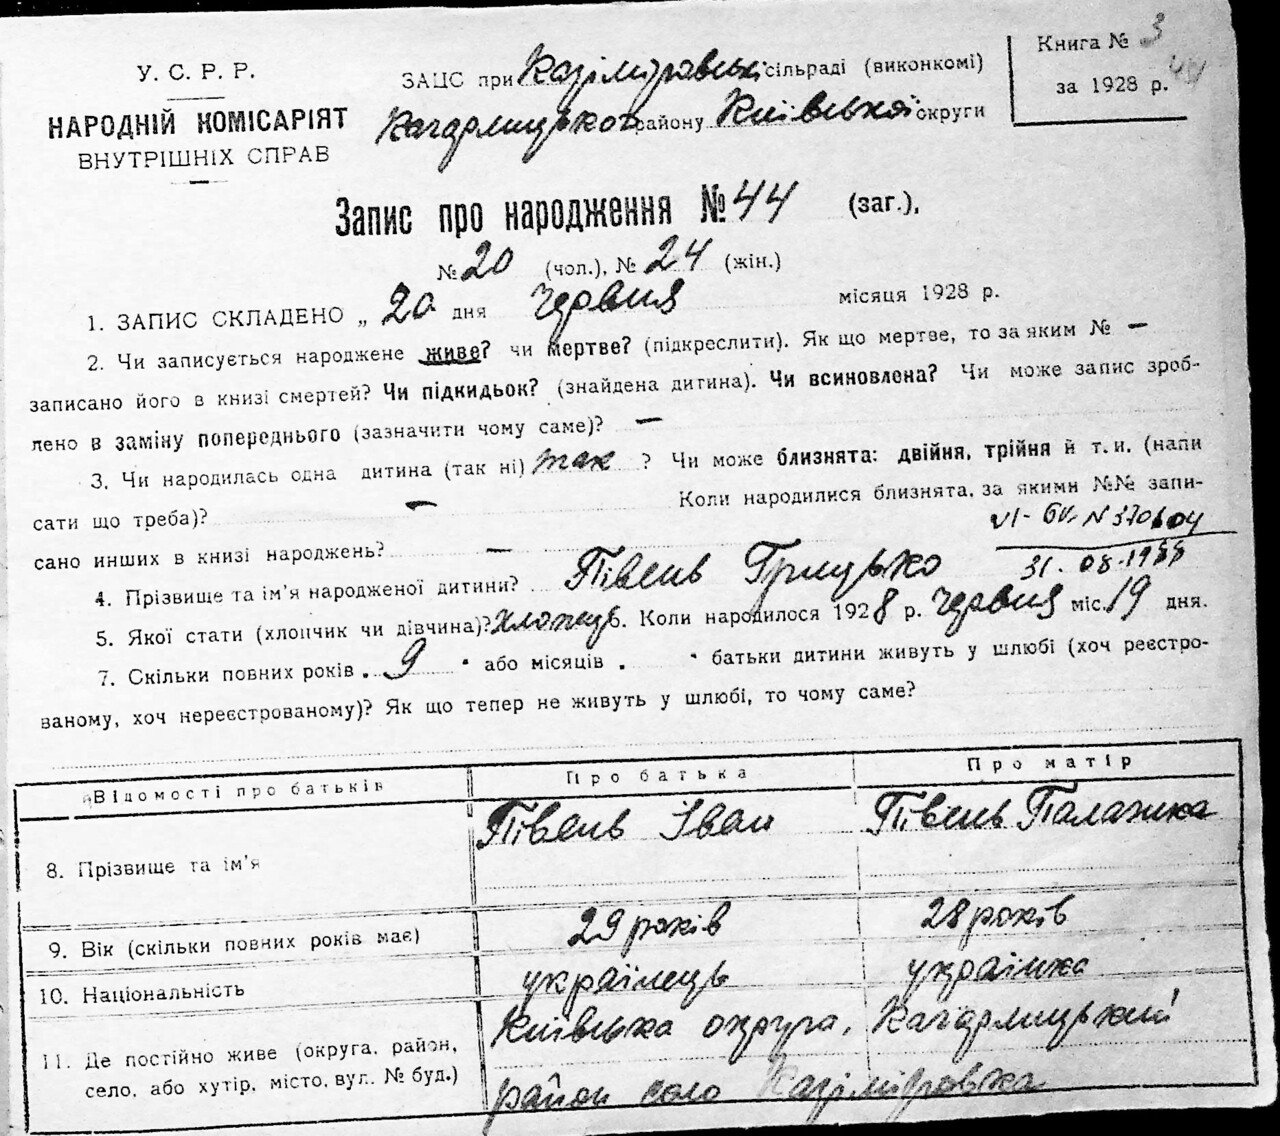 У. С. Р. Р.
НАРОДНІЙ КОМІСАРІЯТ
ВНУТРІШНІХ СПРАВ
ЗАЦС при Казіміровські сільраді (виконкомі)
Кагарлицької району Київської округи
Книга № 3
за 1928 р. 44
Запис про народження № 44 (заг.),
№ 20 (чол.), № 24 (жін.)
1. ЗАПИС СКЛАДЕНО „ 20 дня Червня місяця 1928 р.
2. Чи записується народжене живе? чи мертве? (підкреслити). Як що мертве, то за яким № —
записано його в книзі смертей? Чи підкидьок? (знайдена дитина). Чи всиновлена? Чи може запис зроб-
лено в заміну попереднього (зазначити чому саме)? —
3. Чи народилась одна дитина (так ні) так ? Чи може близнята: двійня, трійня й т. и. (напи
сати що треба)? — Коли народилися близнята, за якими №№ запи-
сано инших в книзі народжень? —
VI-БК N 370604
31.08.1955
4. Прізвище та ім'я народженої дитини? Півень Грицько
5. Якої стати (хлопчик чи дівчина)? хлопець 6. Коли народилося 1928 р. Червня міс. 19 дня.
7. Скільки повних років . 9 або місяців . батьки дитини живуть у шлюбі (хоч реєстро-
ваному, хоч нереєстрованому)? Як що тепер не живуть у шлюбі, то чому саме?
Відомості про батьків Про батька Про матір
8. Прізвище та ім'я Півень Іван Півень Палажка
9. Вік (скільки повних років має) 29 років 28 років
10. Національність українець українка
11. Де постійно живе (округа, район, Київська округа, Кагарлицький
село, або хутір, місто, вул. № буд.) район село Казіміровка